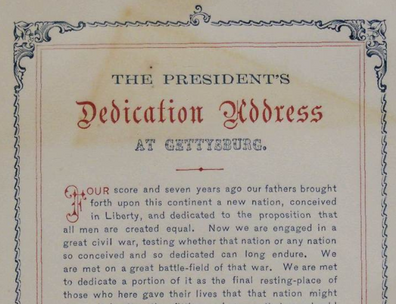 THE PRESIDENT'S
Dedication Address
AT GETTYSBURG.
FOUR score and seven years ago our fathers brought
forth upon this continent a new nation, conceived
in Liberty, and dedicated to the proposition that
all men are created equal. Now we are engaged in a
great civil war, testing whether that nation or any nation
so conceived and so dedicated can long endure. We
are met on a great battle-field of that war. We are met
to dedicate a portion of it as the final resting-place of
those who here gave their lives that that nation might